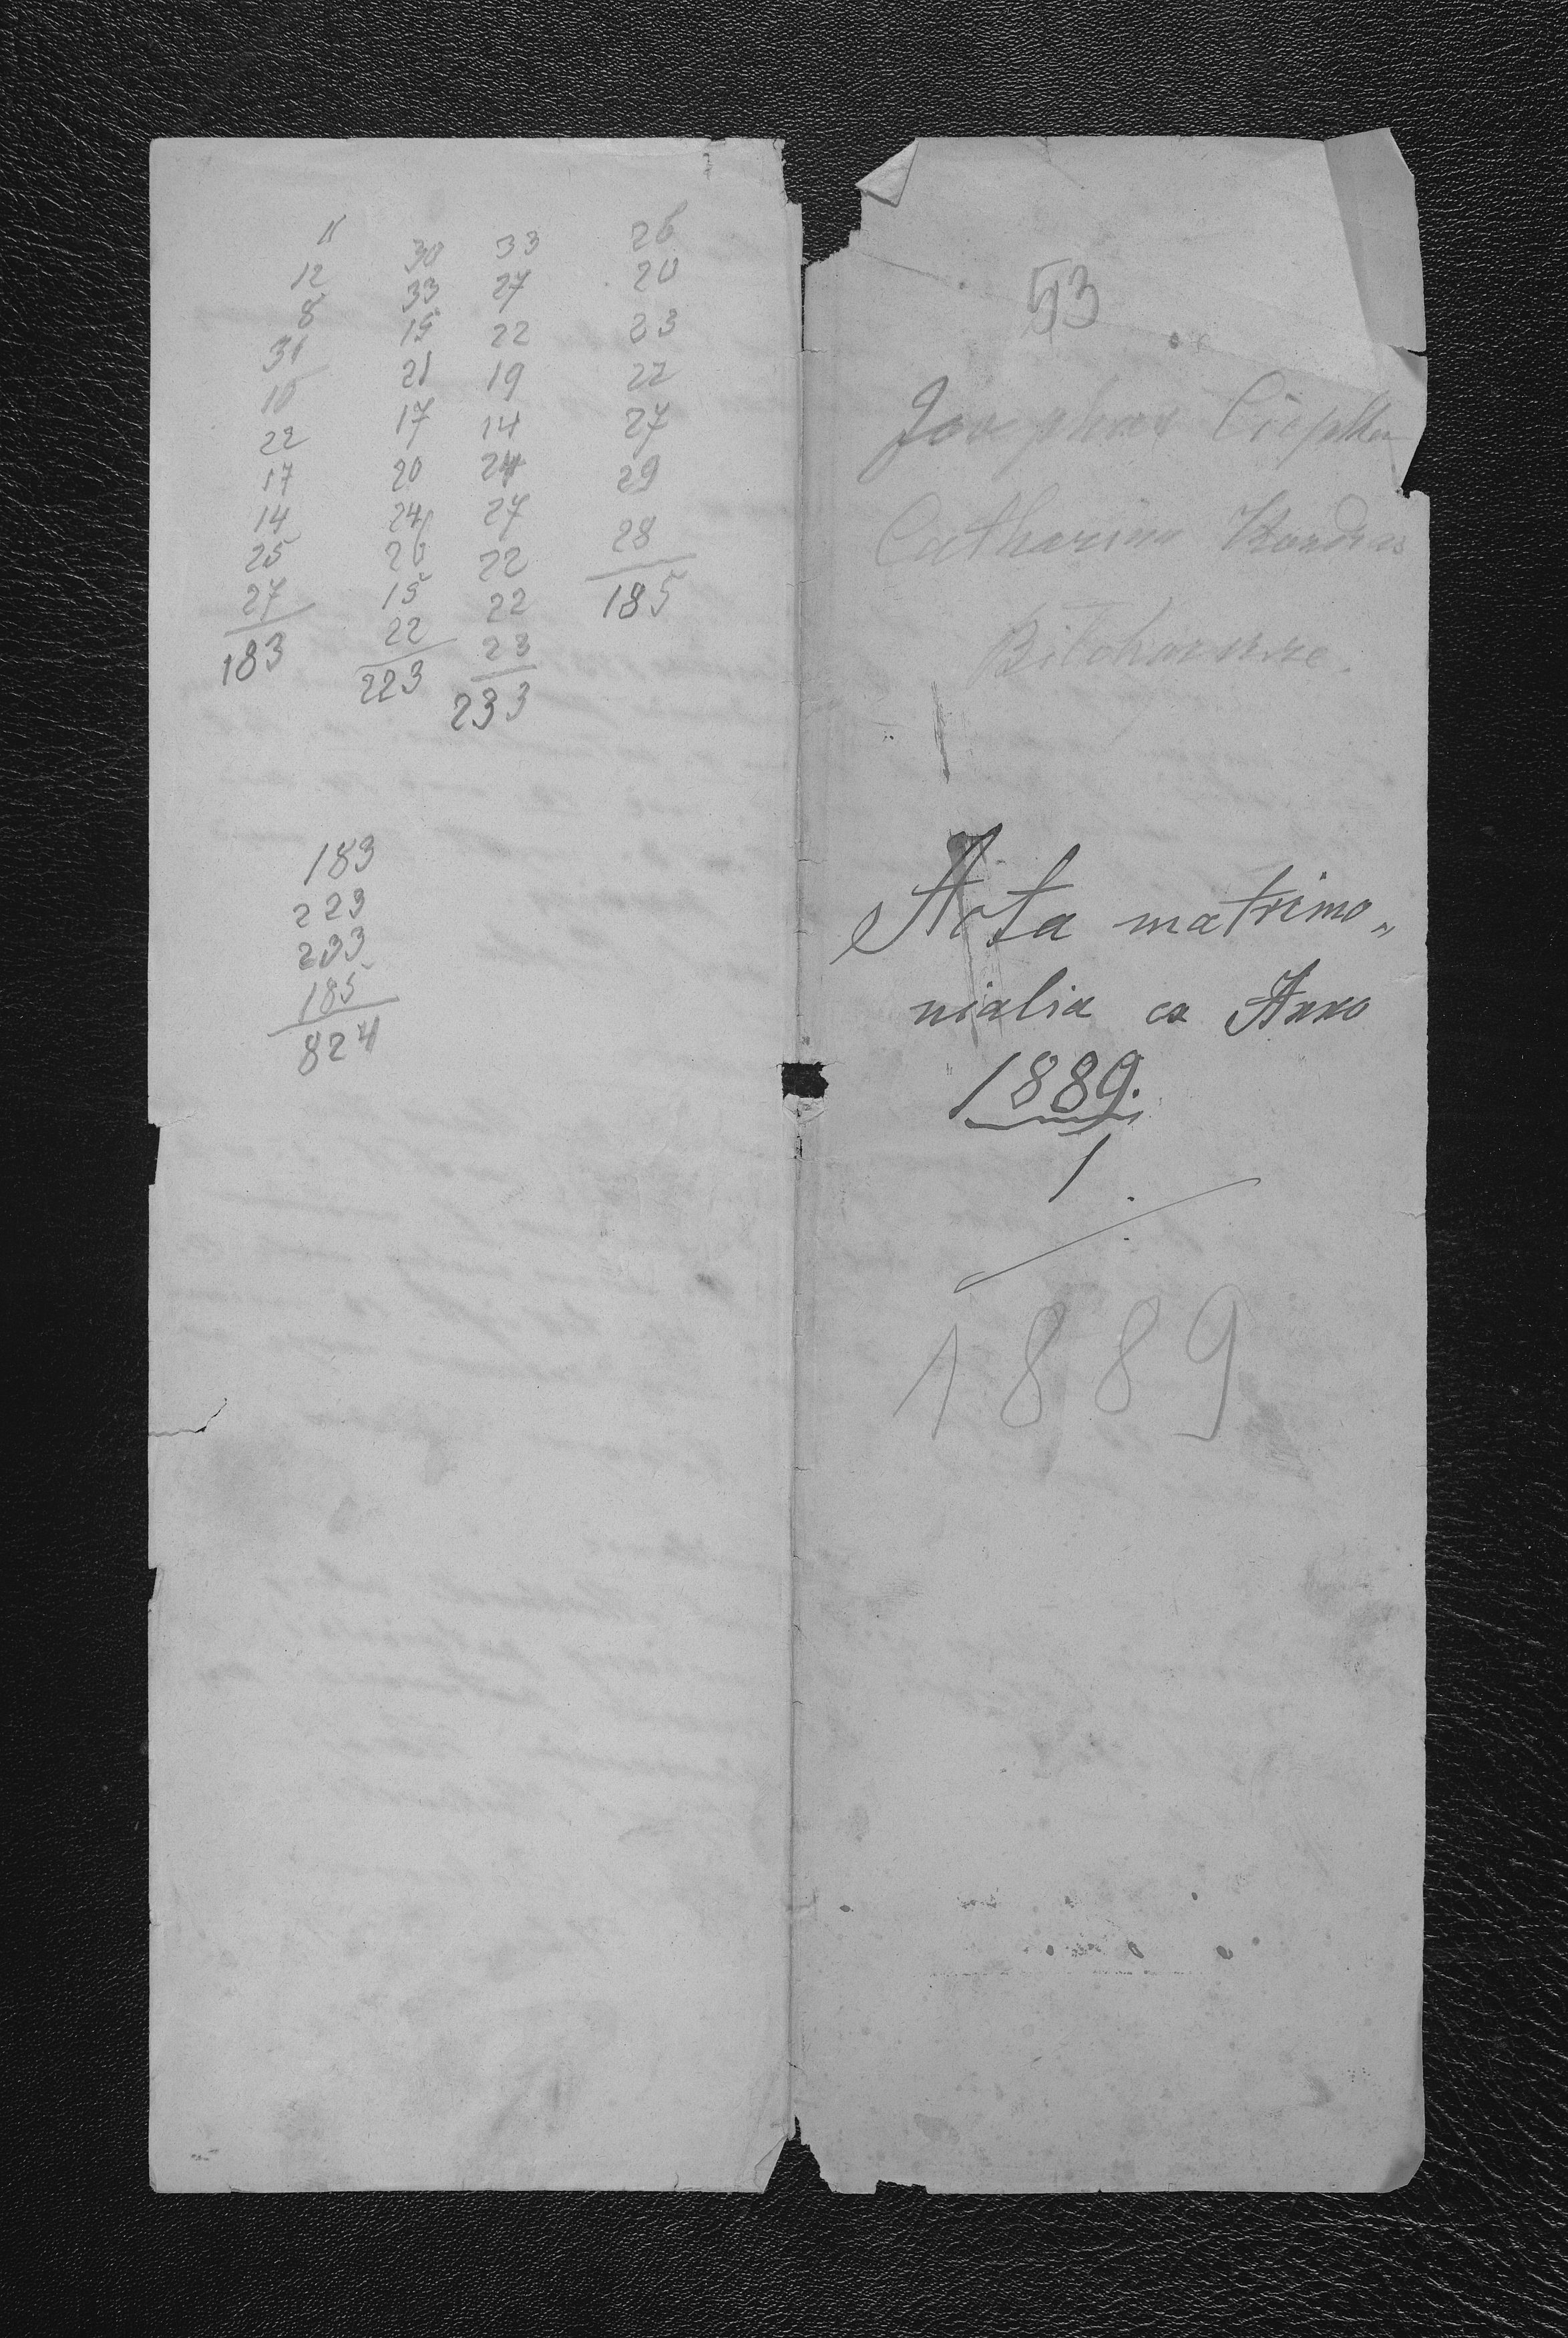 11
12
8
31
16
22
17
14
25
27
183
30
33
15
21
17
20
24
26
15
22
223
33
27
22
19
14
24
27
22
22
23
233
26
20
23
22
27
29
28
185
183
223
233
185
824
53
Catharina
Acta matrimo„
nialia ex Anno
1889.
1889